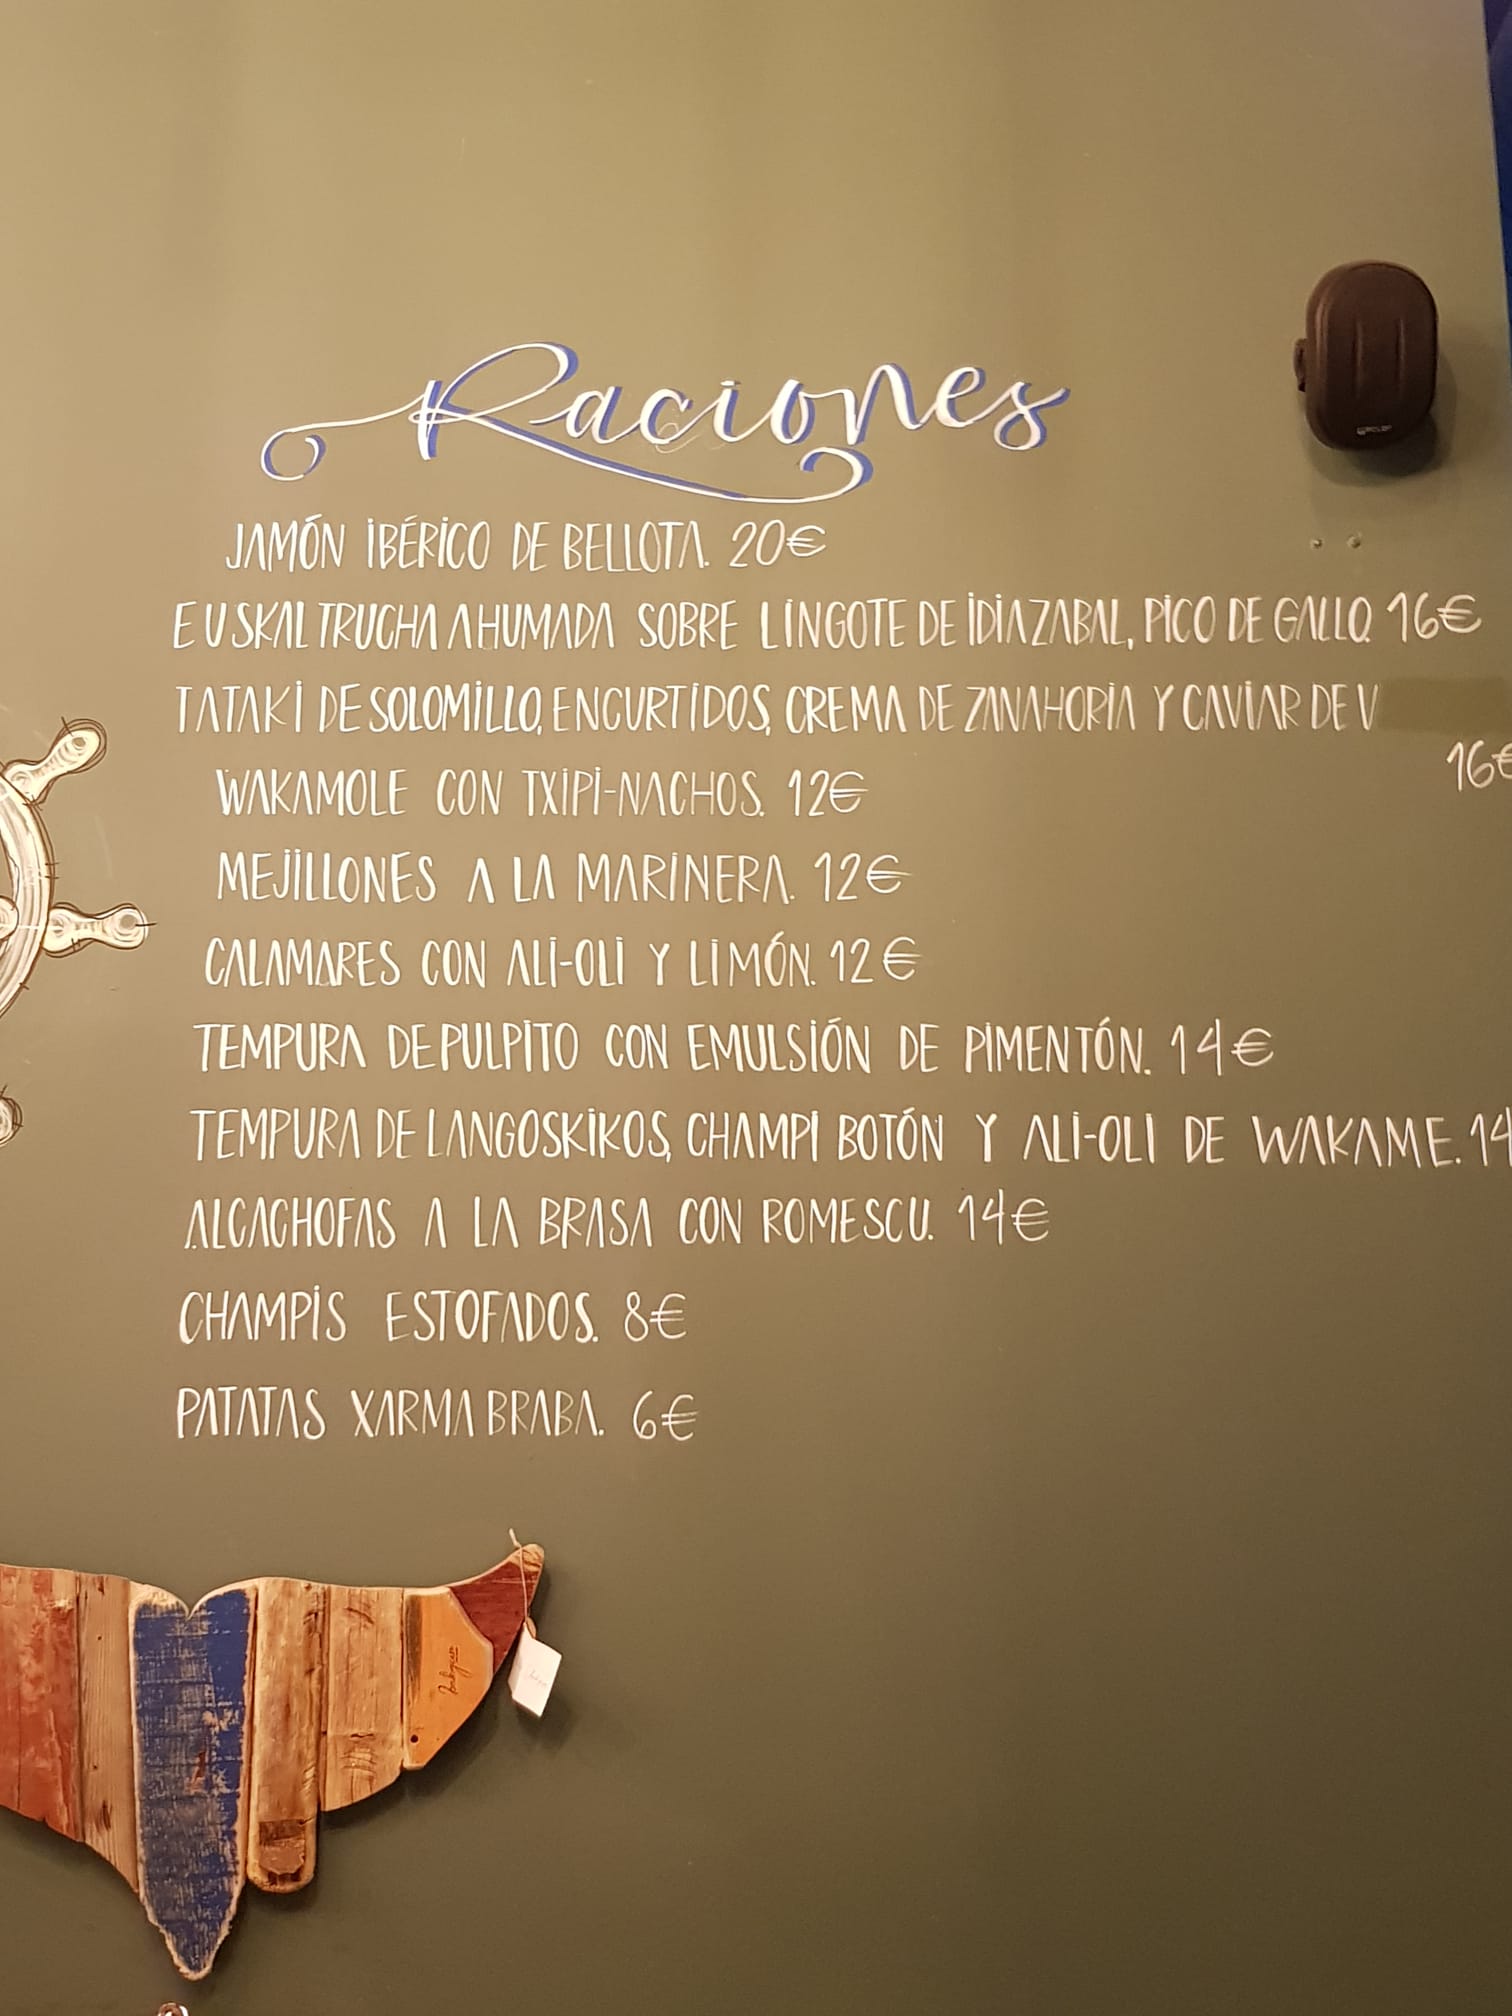 Raciones
JAMÓN IBÉRICO DE BELLOTA. 20€
EUSKAL TRUCHA AHUMADA SOBRE LINGOTE DE IDIAZABAL, PICO DE GALLO. 16€
TATAKI DE SOLOMILLO, ENCURTIDOS, CREMA DE ZANAHORIA Y CAVIAR DE V
16€
WAKAMOLE CON TXIPI-NACHOS. 12€
MEJILLONES A LA MARINERA. 12€
CALAMARES CON ALI-OLI Y LIMÓN. 12€
TEMPURA DE PULPITO CON EMULSIÓN DE PIMENTÓN. 14€
TEMPURA DE LANGOSKIKOS, CHAMPI BOTÓN Y ALI-OLI DE WAKAME. 14
ALCACHOFAS A LA BRASA CON ROMESCU. 14€
CHAMPIS ESTOFADOS. 8€
PATATAS XARMA BRABA. 6€